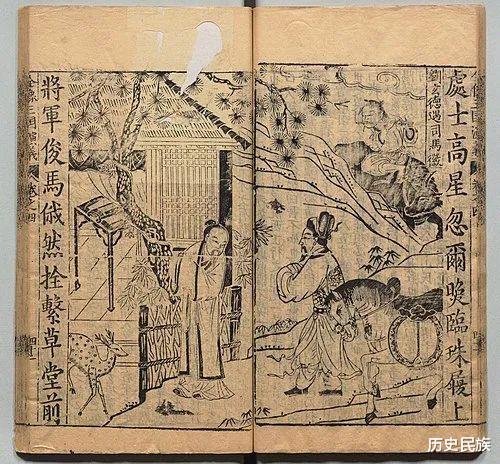 處士高星忽爾暎臨珠履上
劉玄德遇司馬徽
將軍俊馬俄然拴繫草堂前
三国演義
卷之四
历史民族